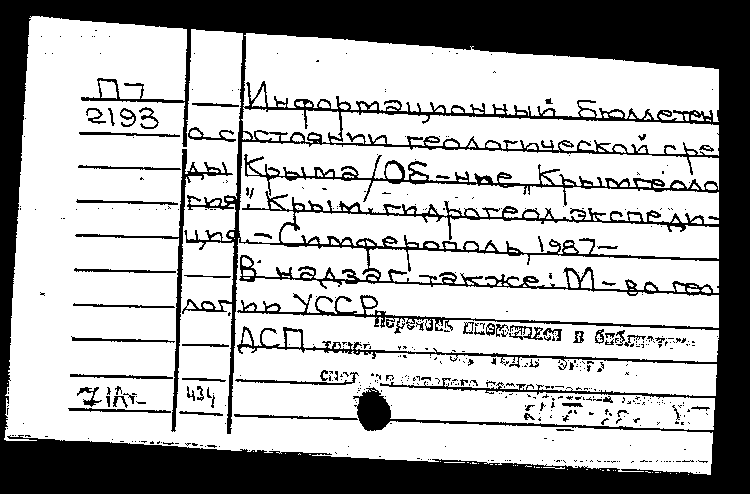 П7
2193
Информационный бюллетен
о состоянии геологической сре
ды Крыма / Об-ние „Крымгеоло
гия" Крым. гидрогеол. экспеди-
ция. – Симферополь, 1987–
В надзаг. также: М-во гео
логии УССР
ДСП
Перечень имеющихся в библиотеке
434